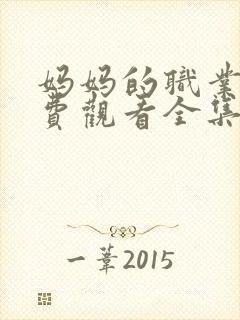 妈妈的職業
費觀看全集
一葦2015